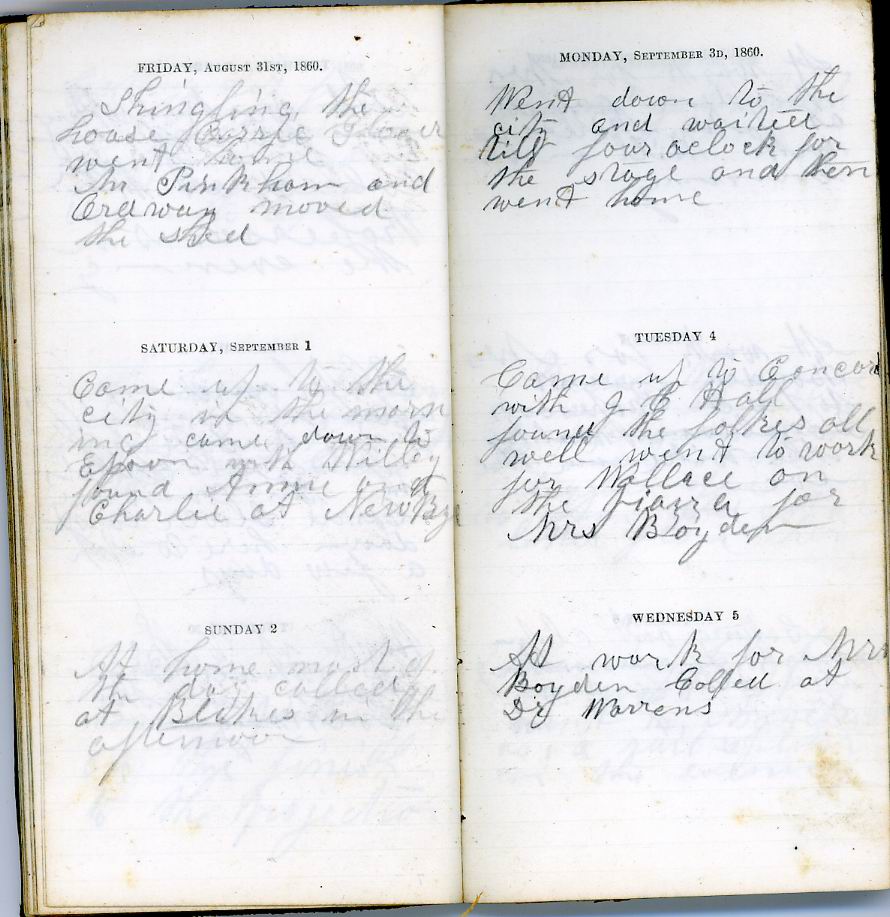 FRIDAY, AUGUST 31ST, 1860.
Shingling the
house Carrie
went home
Mr Pinkham and
Ordway moved
the shed
SATURDAY, SEPTEMBER 1
Came up to the
city in the morn
ing came down to
Epsom with Willey
found Annie and
Charlie at New Rye
SUNDAY 2
At home most of
the day called
at Blakes in the
afternoon
MONDAY, SEPTEMBER 3D, 1860.
Went down to the
city and waited
till four oclock for
the stage and then
went home
TUESDAY 4
Came up to Concord
with J C Hall
found the folkes all
well went to work
for Wallace on
the Piazza for
Mrs Boyden
WEDNESDAY 5
At work for Mrs
Boyden Called at
Dr Warrens